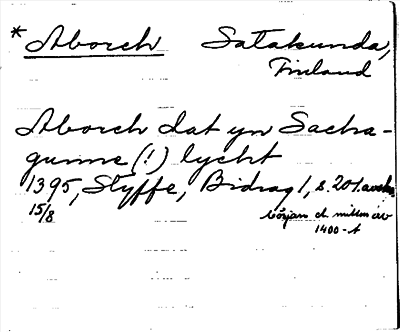 * Aborch Satakunda,
Finland
Aborch dat yn Sacha-
gunne (!) lycht
1395, Styffe, Bidrag 1, s. 201. avskr
15/8 början el. mitten av
1400-t